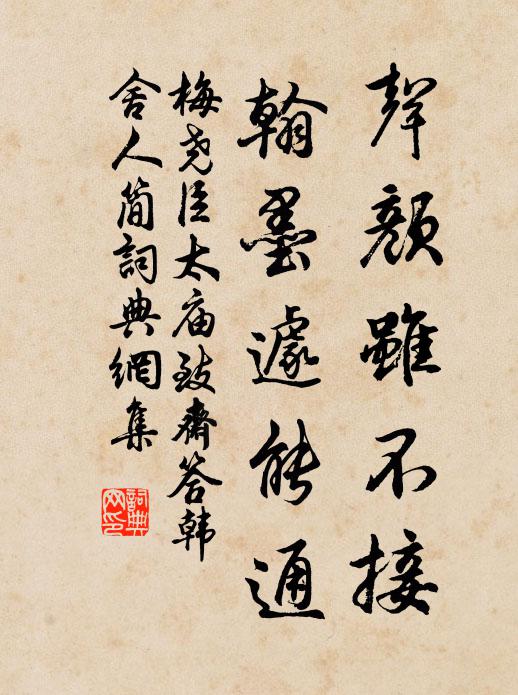 聲顏雖不接
翰墨遽能通
梅尧臣太庙致齋答韩
舍人简詞典網集
詞典网印